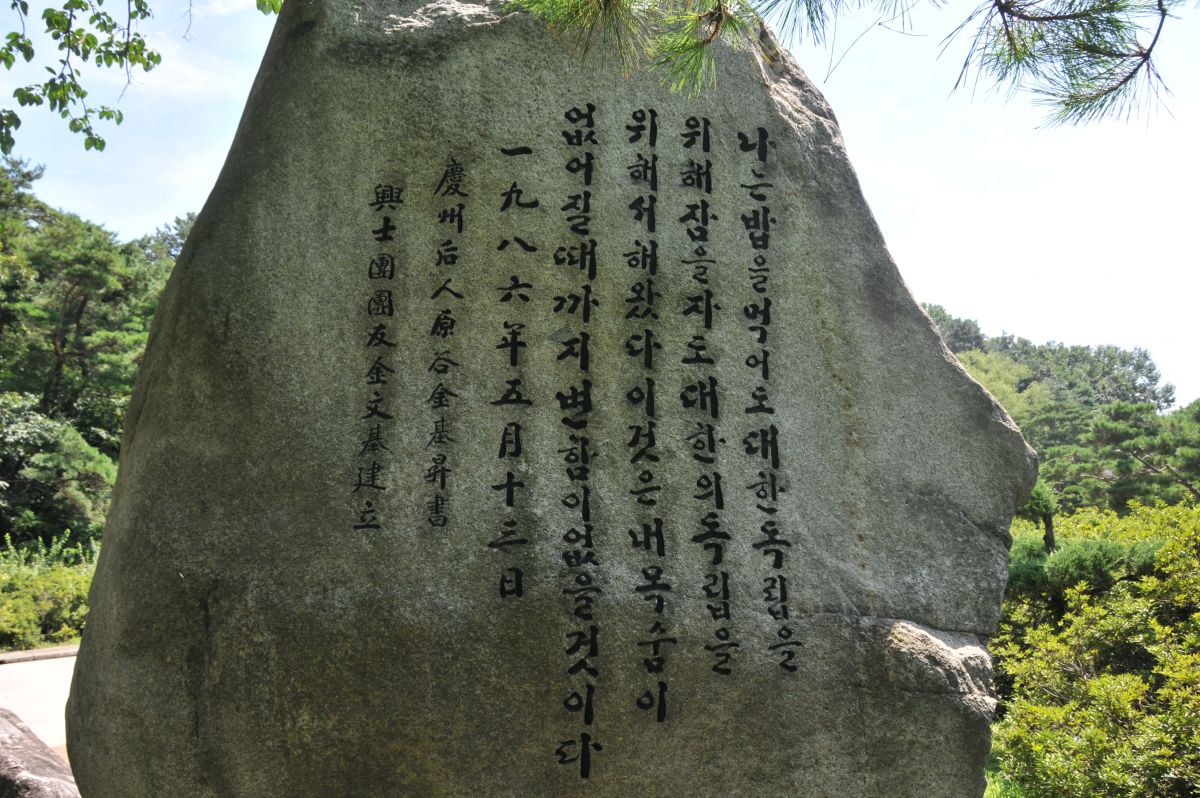 나는밥을먹어도대한독립을
위해잠을자도대한의독립을
위해서해왔다이것은내목숨이
없어질때까지변함이없을것이다
一九八六年五月十三日
慶州后人原谷金基昇書
興士團團友金文基建立